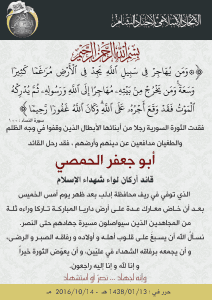 الاتحاد الإسلامي لأجناد الشام
بسم الله الرحمن الرحيم
﴿ وَمَن يُهَاجِرْ فِي سَبِيلِ اللَّهِ يَجِدْ فِي الْأَرْضِ مُرَاغَمًا كَثِيرًا
وَسَعَةً وَمَن يَخْرُجْ مِن بَيْتِهِ مُهَاجِرًا إِلَى اللَّهِ وَرَسُولِهِ ثُمَّ يُدْرِكْهُ
الْمَوْتُ فَقَدْ وَقَعَ أَجْرُهُ عَلَى اللَّهِ وَكَانَ اللَّهُ غَفُورًا رَحِيمًا ﴾
فقدت الثورة السورية رجلا من أبنائها الأبطال الذين وقفوا في وجه الظلم
والطغيان مدافعين عن دينهم وأرضهم ، فقد رحل القائد
أبو جعفر الحمصي
قائد أركان لواء شهداء الإسلام
الذي توفي في ريف محافظة إدلب بعد ظهر يوم أمس الخميس
بعد أن خاض معارك عدة على أرض داريا المباركة تاركا وراءه ثلة
من المجاهدين الذين سيواصلون مسيرة جهادهم حتى النصر.
نسأل الله أن يسبغ على قلوب أهله و أولاده و رفاقه الصبر و الرضى،
و أن يجمعه برفاقه الشهداء في عليين، و أن يعوض الثورة خيراً
و إنا لله و إنا إليه راجعون.
وإنه لجهاد ... نصر أو استشهاد
حرر في : 1438/01/13هـ - 2016/10/14 م